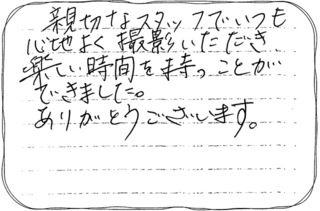 親切なスタッフでいつも
心地よく撮影いただき
楽しい時間を持つことが
できました。
ありがとうございます。